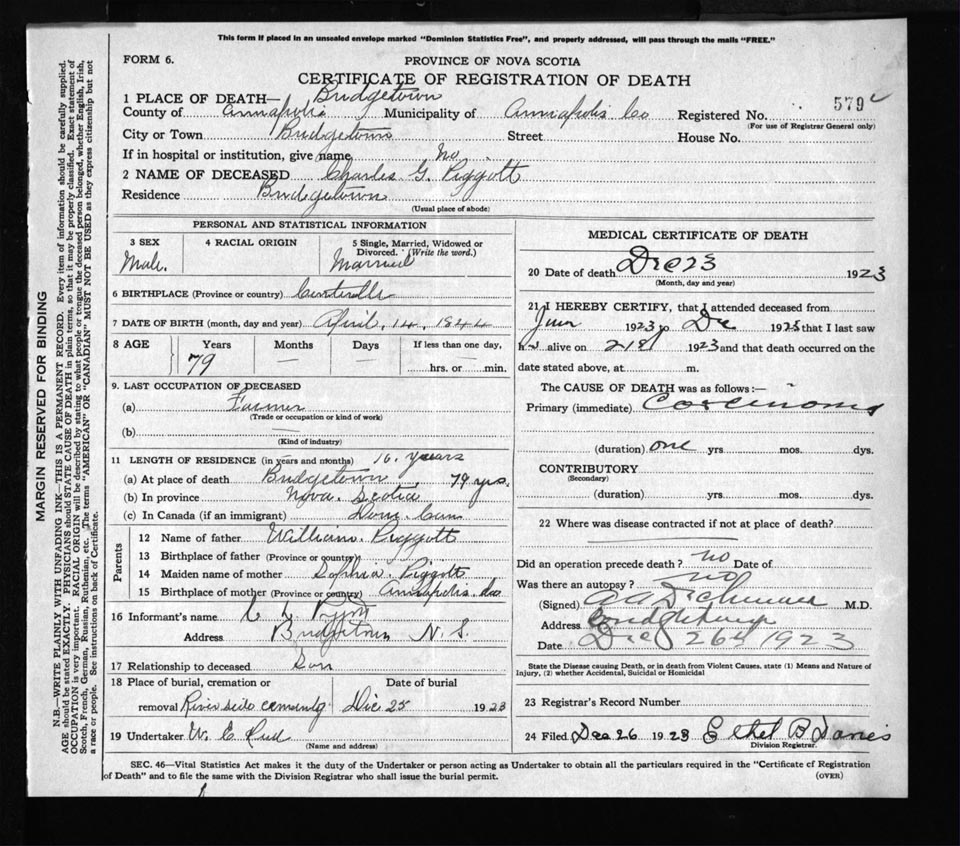 This form if placed in an unsealed envelope marked "Dominion Statistics Free", and properly addressed, will pass through the mails "FREE."
FORM 6.
PROVINCE OF NOVA SCOTIA
CERTIFICATE OF REGISTRATION OF DEATH
1 PLACE OF DEATH— Bridgetown
County of Annapolis Municipality of Annapolis Co Registered No. 579
(For use of Registrar General only)
City or Town Bridgetown Street House No.
If in hospital or institution, give name no
2 NAME OF DECEASED Charles G. Piggott
Residence Bridgetown
(Usual place of abode)
PERSONAL AND STATISTICAL INFORMATION
3 SEX 4 RACIAL ORIGIN 5 Single, Married, Widowed or Divorced. (Write the word.)
Male. Married
6 BIRTHPLACE (Province or country) Centrelle
7 DATE OF BIRTH (month, day and year) April, 14, 1844
8 AGE Years Months Days If less than one day,
79 — — hrs. or min.
9. LAST OCCUPATION OF DECEASED
(a) Farmer
(Trade or occupation or kind of work)
(b) —
(Kind of industry)
11 LENGTH OF RESIDENCE (in years and months) 16. years
(a) At place of death Bridgetown 79 yrs.
(b) In province Nova. Scotia
(c) In Canada (if an immigrant) Dom. Can
Parents
12 Name of father William. Piggott
13 Birthplace of father (Province or country)
14 Maiden name of mother Sophia. Piggott
15 Birthplace of mother (Province or country) Annapolis Co.
16 Informant's name C. L.
Address Bridgetown N. S.
17 Relationship to deceased Son
18 Place of burial, cremation or Date of burial
removal River side Dec 25 1923
19 Undertaker W. C.
(Name and address)
MEDICAL CERTIFICATE OF DEATH
20 Date of death Dec 23 1923
(Month, day and year)
21 I HEREBY CERTIFY, that I attended deceased from
June 1923 to Dec 1923 that I last saw
h alive on 21st 1923 and that death occurred on the
date stated above, at m.
The CAUSE OF DEATH was as follows:—
Primary (immediate) Carcinoma
(duration) one yrs. mos. dys.
CONTRIBUTORY
(Secondary)
(duration) yrs. mos. dys.
22 Where was disease contracted if not at place of death?
Did an operation precede death? no Date of
Was there an autopsy? no
(Signed) M.D.
Address
Date Dec 26th 1923
State the Disease causing Death, or in death from Violent Causes, state (1) Means and Nature of
Injury, (2) whether Accidental, Suicidal or Homicidal
23 Registrar's Record Number
24 Filed Dec 26 1923 Ethel B Davies
Division Registrar.
SEC. 46—Vital Statistics Act makes it the duty of the Undertaker or person acting as Undertaker to obtain all the particulars required in the "Certificate of Registration
of Death" and to file the same with the Division Registrar who shall issue the burial permit.
(OVER)
MARGIN RESERVED FOR BINDING
N.B.—WRITE PLAINLY WITH UNFADING INK—THIS IS A PERMANENT RECORD. Every item of information should be carefully supplied.
AGE should be stated EXACTLY. PHYSICIANS should STATE CAUSE OF DEATH in plain terms, so that it may be properly classified. Exact statement of
OCCUPATION is very important. RACIAL ORIGIN will be described by stating to what people or tongue the deceased person belonged, whether English, Irish,
Scotch, French, German, Russian, Ruthenian, etc. The terms "AMERICAN" or "CANADIAN" MUST NOT BE USED as they express citizenship but not
a race or people. See instructions on back of Certificate.